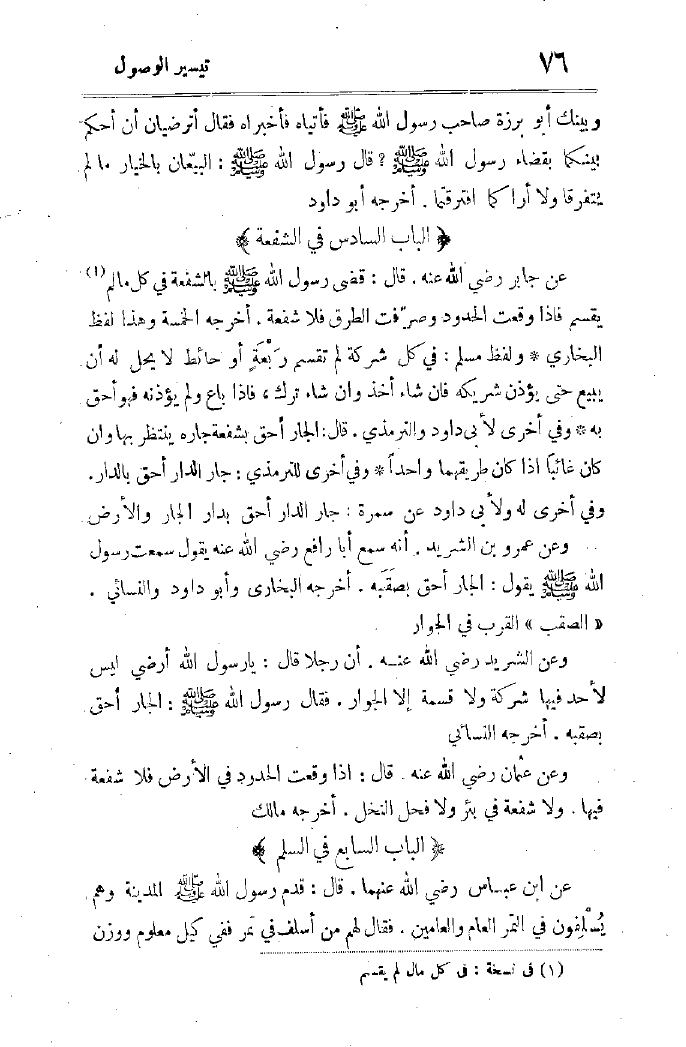 ٧٦ تيسير الوصول
وبينك أبو برزة صاحب رسول الله ﷺ فأتياه فأخبراه فقال أترضيان أن أحكم
بينكما بقضاء رسول الله ﷺ ؟ قال رسول الله ﷺ : البيّعان بالخيار ما لم
يتفرقا ولا أراكما افترقتما . أخرجه أبو داود
﴿ الباب السادس في الشفعة ﴾
عن جابر رضي الله عنه . قال : قضى رسول الله ﷺ بالشفعة في كل مالم (١)
يقسم فاذا وقعت الحدود وصرّفت الطرق فلا شفعة . أخرجه الخمسة وهذا لفظ
البخاري * ولفظ مسلم : في كل شركة لم تقسم رَبْعَةٍ أو حائط لا يحل له أن
يبيع حتى يؤذن شريكه فان شاء أخذ وان شاء ترك ، فاذا باع ولم يؤذنه فهو أحق
به * وفي أخرى لأبى داود والترمذي . قال : الجار أحق بشفعة جاره ينتظر بها وان
كان غائبا اذا كان طريقهما واحداً * وفي أخرى للترمذي : جار الدار أحق بالدار .
وفي أخرى له ولأبى داود عن سمرة : جار الدار أحق بدار الجار والأرض
وعن عمرو بن الشريد . أنه سمع أبا رافع رضي الله عنه يقول سمعت رسول
الله ﷺ يقول : الجار أحق بصَقَبه . أخرجه البخارى وأبو داود والنسائي .
« الصقب » القرب في الجوار
وعن الشريد رضي الله عنه . أن رجلا قال : يارسول الله أرضي ليس
لأحد فيها شركة ولا قسمة إلا الجوار . فقال رسول الله ﷺ : الجار أحق
بصقبه . أخرجه النسائي
وعن عثمان رضي الله عنه . قال : اذا وقعت الحدود في الأرض فلا شفعة
فيها . ولا شفعة في بئر ولا فحل النخل . أخرجه مالك
﴿ الباب السابع في السلم ﴾
عن ابن عباس رضي الله عنهما . قال : قدم رسول الله ﷺ المدينة وهم
يُسْلِفون في التمر العام والعامين . فقال لهم من أسلف في تمر ففي كيل معلوم ووزن
(١) فى نسخة : فى كل مال لم يقسم